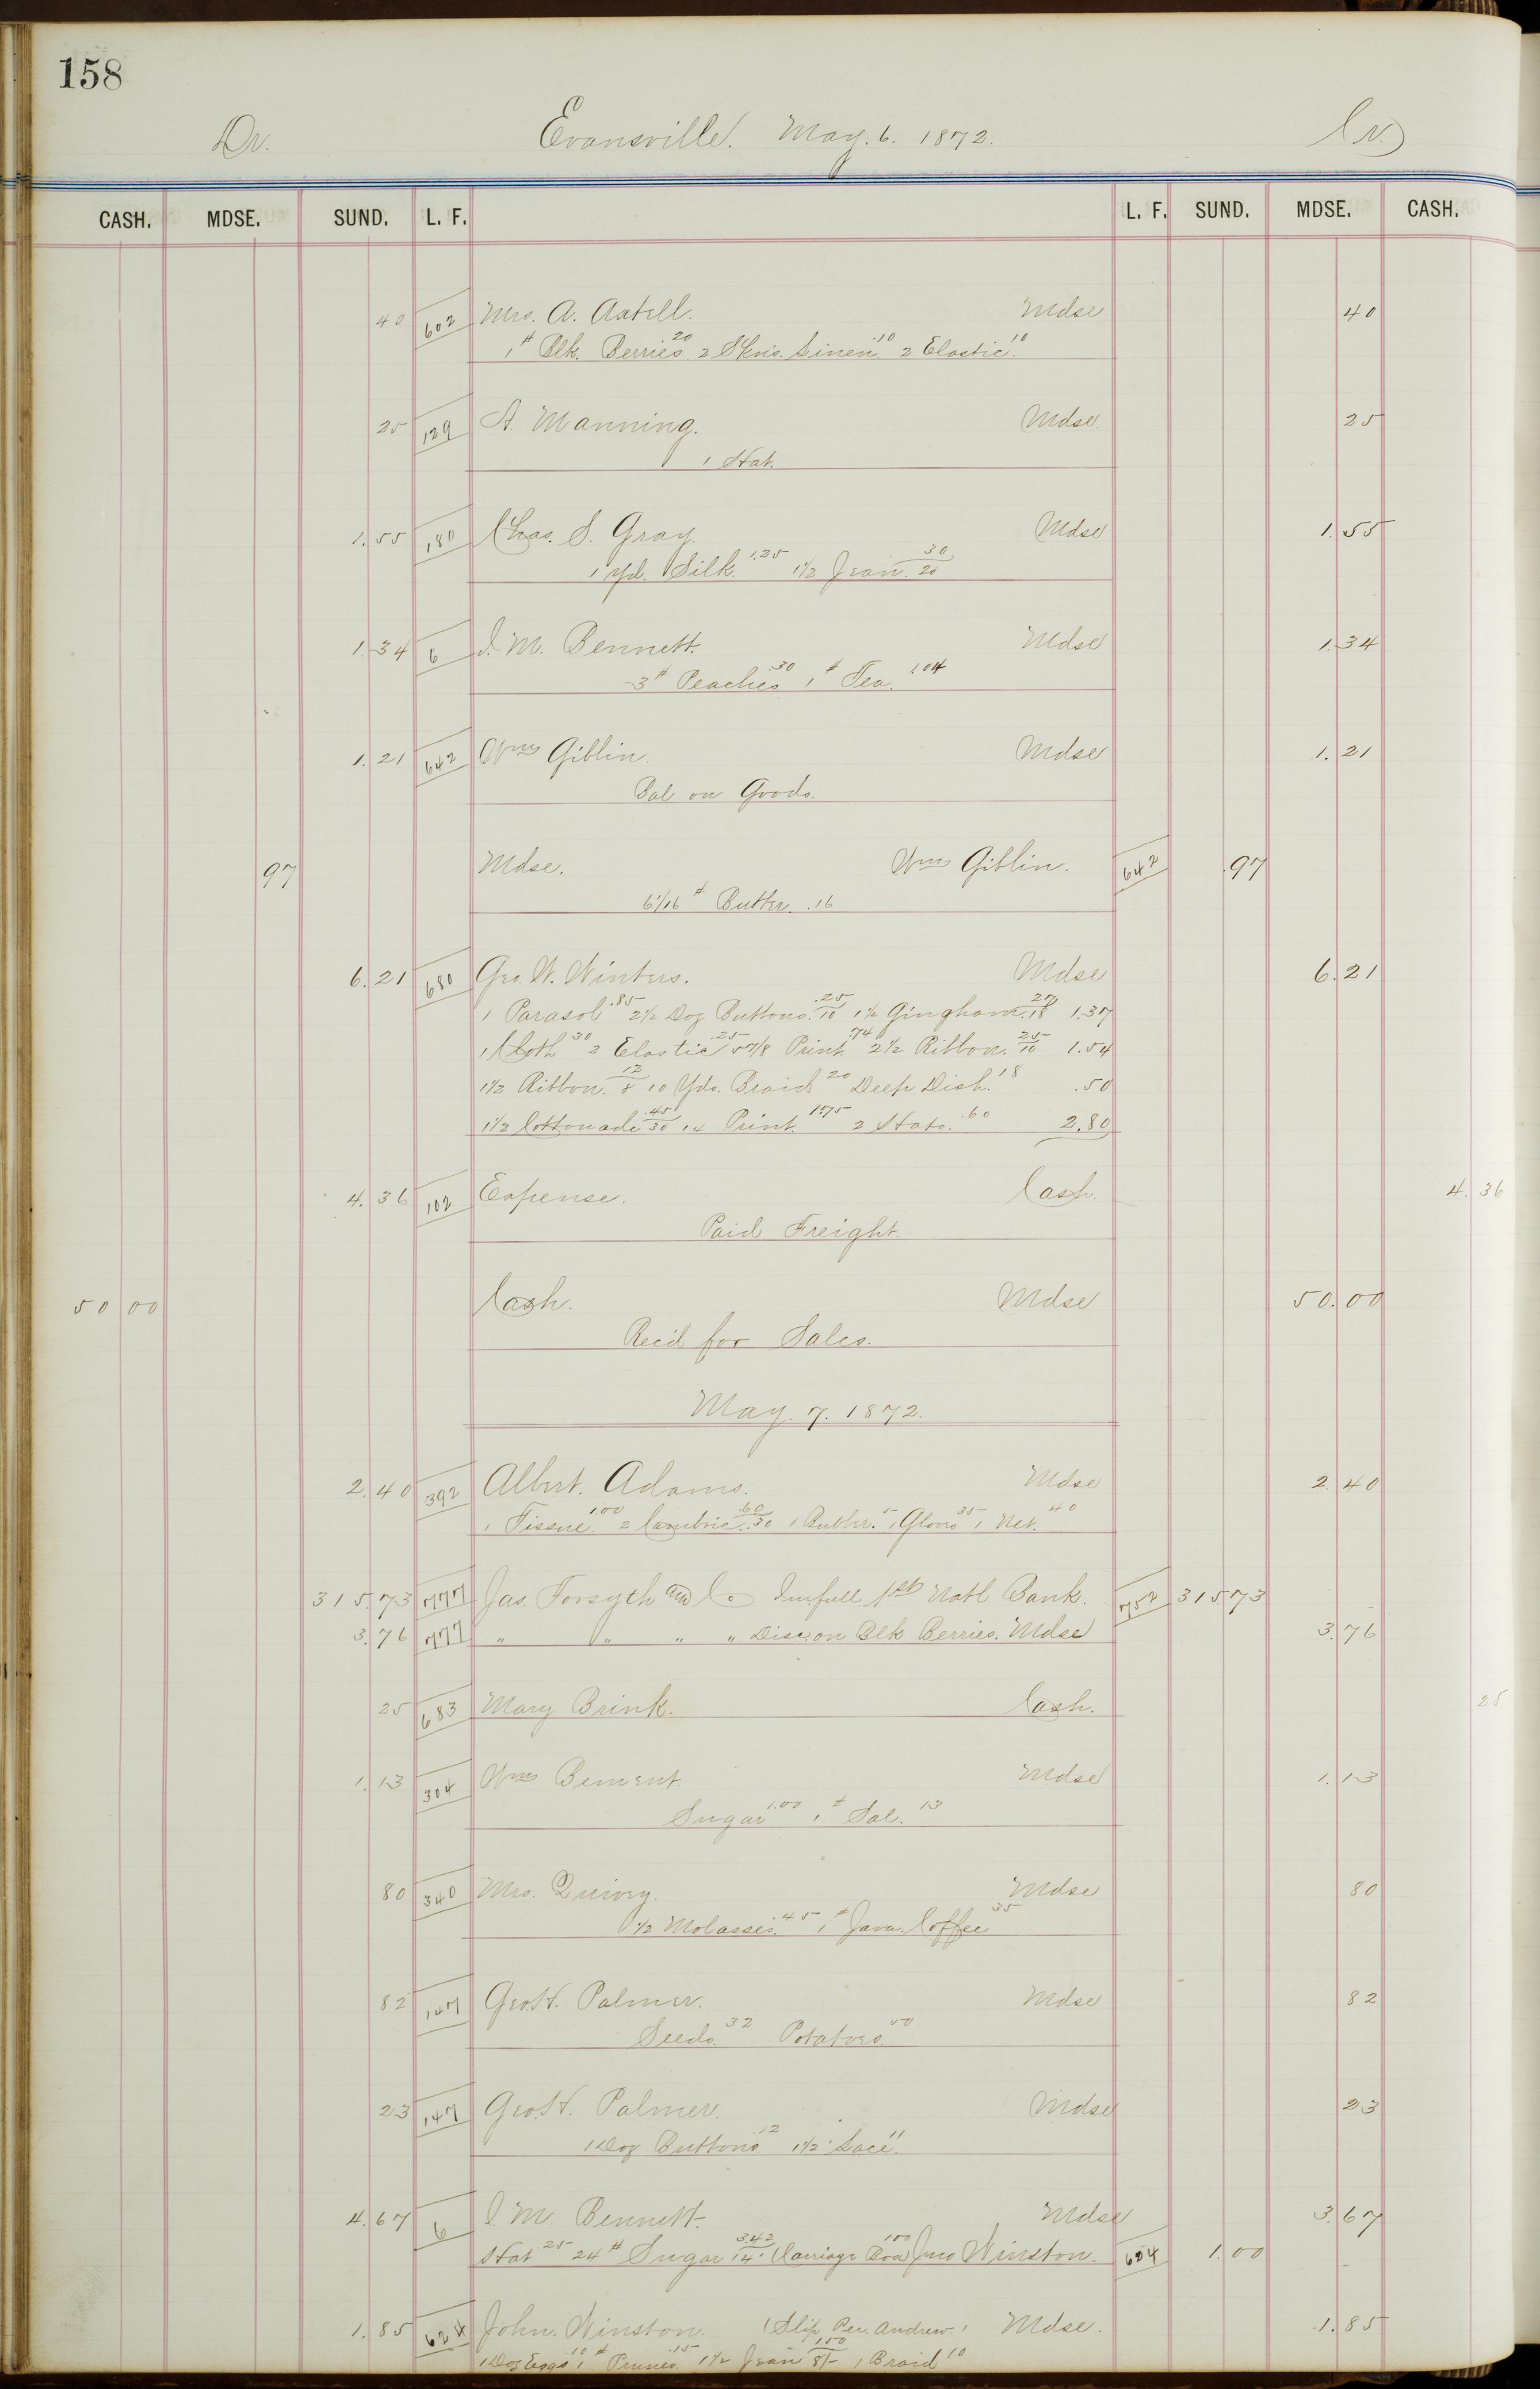 158
Dr. Evansville. May. 6. 1872. Cr.
CASH. MDSE. SUND. L. F. L. F. SUND. MDSE. CASH.
40 602 Mrs. A. Axtell. Mdse 40
1# Blk. Berries 20 2 Skns. Linen .10 2 Elastic 10
25 129 A. Manning. Mdse 25
1 Hat.
1.55 180 Chas. S. Gray. Mdse 1.55
1 Yd. Silk. 1.25 1 1/2 Jean. 30/20
1.34 6 I. M. Bennett. Mdse 1.34
3# Peaches .30 1# Tea. 1.04
1.21 642 Wm Giblin. Mdse 1.21
Bal on Goods.
97 Mdse. Wm Giblin. 642 .97
6 1/16# Butter. .16
6.21 680 Geo. W. Winters. Mdse 6.21
1 Parasol .85 2 1/2 Doz Buttons. .25/10 1 1/2 Gingham. 27/18 1.37
1 Cloth 30 2 Elastic .25 5 7/8 Print .74 2 1/2 Ribbon. 25/10 1.54
1 1/2 Ribbon. 12/8 10 Yds. Braid 20 Deep Dish. 18 .50
1 1/2 Cottonade .45/30 14 Print. 1.75 2 Hats. .60 2.80
4.36 102 Expense. Cash. 4.36
Paid Freight.
50 00 Cash. Mdse 50.00
Recd for Sales.
May. 7. 1872.
2.40 392 Albert. Adams. Mdse 2.40
1 Tissue. 1.00 2 Cambric. .60/.30 1 Rubber. 5 1 Glovs 35 1 Net. 40
315.73 777 Jas Forsyth and Co Infull 1st Natl Bank. 752 315 73
3.76 777 " " " " Disc. on Blk Berries. Mdse 3.76
25 683 Mary Brink. Cash. 25
1.13 304 Wm Bement Mdse 1.13
Sugar 1.00 1# Sal. 13
80 340 Mrs. Quivey. Mdse 80
1/2 Molasses. .45 1# Java. Coffee 35
82 147 Geo. H. Palmer. Mdse 82
Seeds. 32 Potatoes. 50
23 147 Geo. H. Palmer. Mdse 23
1 Doz Buttons 12 1 1/2 Lace. 11
4.67 6 I. M. Bennett. Mdse 3.67
Hat 25 24# Sugar 3.42/14 1/4 Carriage 1.00 Jno Winston. 624 1.00
1.85 624 John. Winston. (Slip Per. Andrew) Mdse. 1.85
1 Doz Eggs 10 1# Prunes .15 1 1/2 Jean 1.50/8/- 1 Braid 10